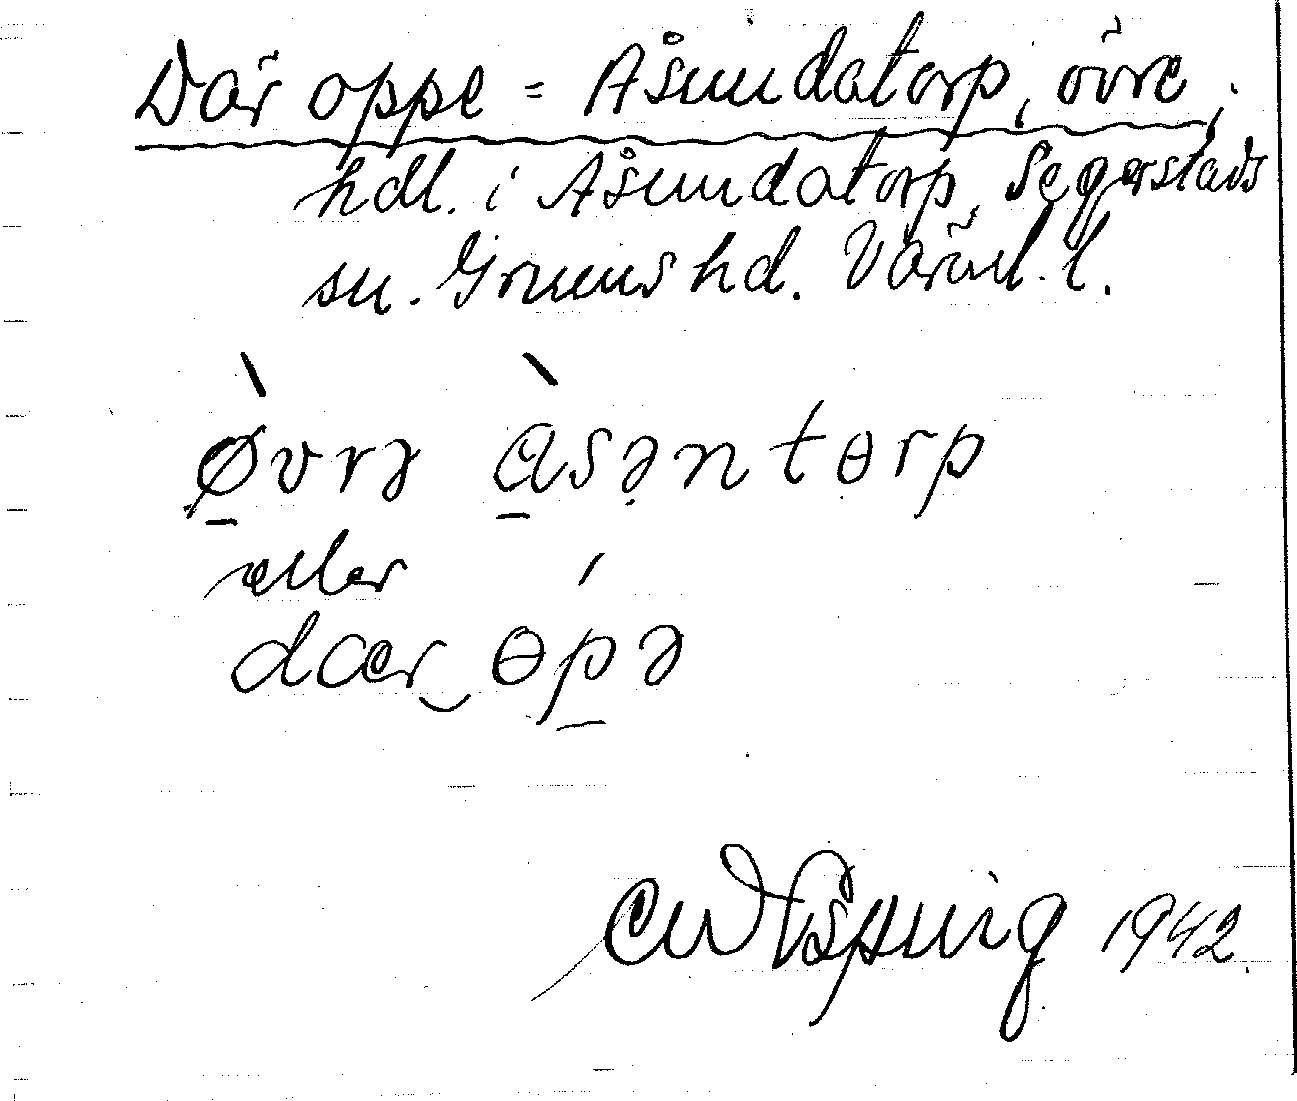 Där oppe = Åsundatorp, övre,
hdl. i Åsundatorp, Segerstads
sn. Grums hd. Värml. l.
ø̀vrə ɑ̀səntɵrp
eller
dær‿ɵṕə
1942